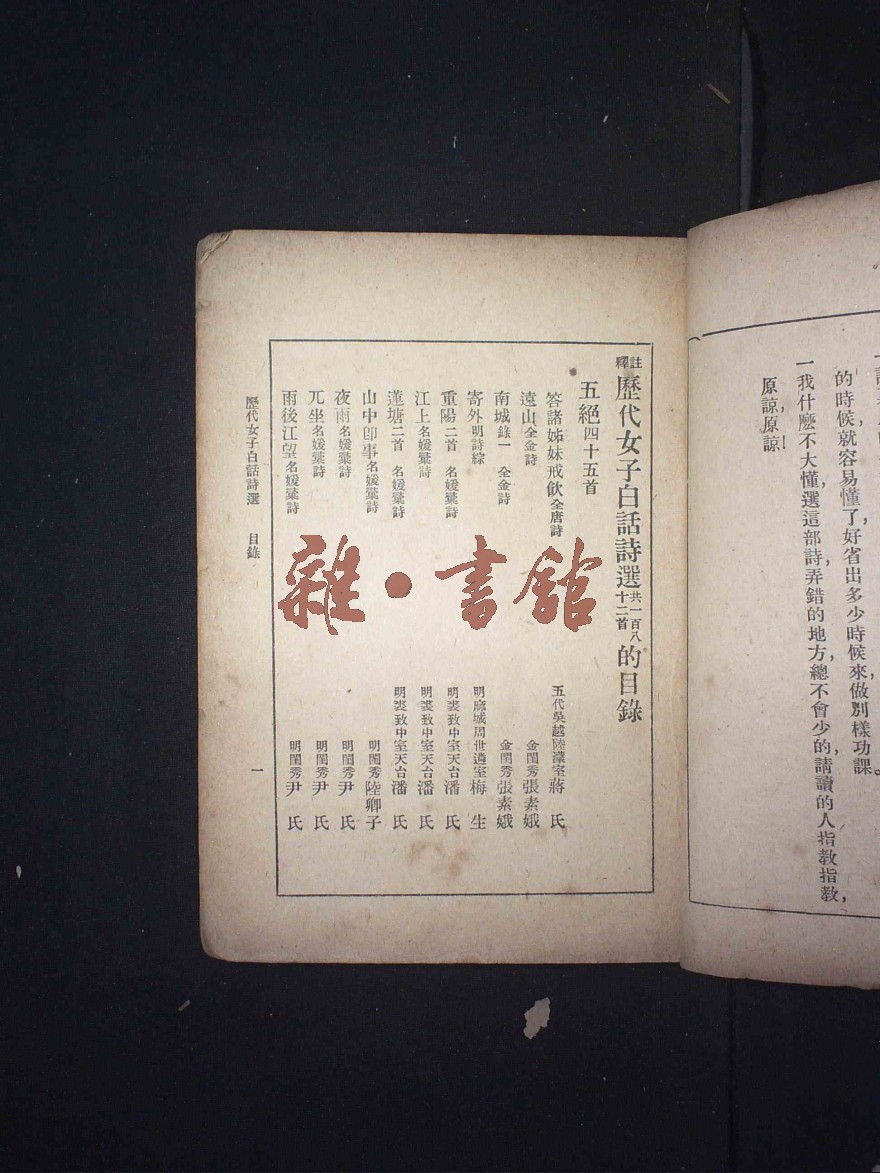 的時候，就容易懂了，好省出多少時候來，做別樣功課。
一我什麽不大懂，選這部詩，弄錯的地方，總不會少的，請讀的人指教指教，
原諒，原諒！
註釋歷代女子白話詩選共一百八十二首的目錄
五絕四十五首
答諸姊妹戒飲全唐詩 五代吳越陸濛室蔣 氏
遠山全金詩 金閨秀張素娥
南城錄一 全金詩 金閨秀張素娥
寄外明詩綜 明麻城周世遴室梅 生
重陽二首 名媛彙詩 明裘致中室天台潘 氏
江上名媛彙詩 明裘致中室天台潘 氏
蓮塘二首 名媛彙詩 明裘致中室天台潘 氏
山中卽事名媛彙詩 明閨秀陸卿子
夜雨名媛彙詩 明閨秀尹 氏
兀坐名媛彙詩 明閨秀尹 氏
雨後江望名媛彙詩 明閨秀尹 氏
歷代女子白話詩選 目錄 一
雜·書館